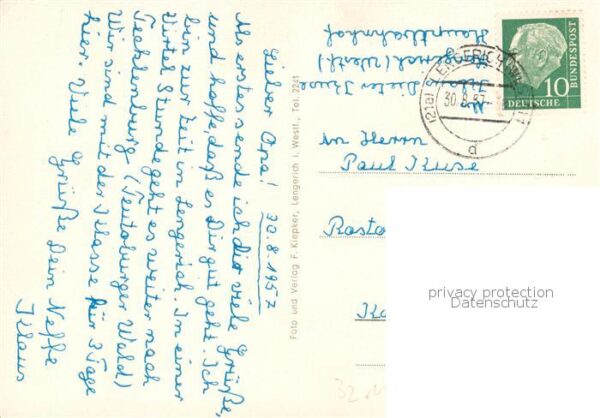 30.8.1957
Lieber Opa!
Als erstes sende ich dir viele Grüße,
und hoffe, daß es Dir gut geht. Ich
bin zur Zeit in Lengerich. In einer
Virtel Stunde geht es weiter nach
Tecklenburg (Teutoburger Wald)
Wir sind mit der Klasse für 3 Tage
hier. Viele Grüße Dein Neffe
Klaus
Foto und Verlag F. Kiepker, Lengerich i. Westf., Tel. 2241
Lengerich (Westf)
Hauptbahnhof
LENGERICH
(21a)
30.8.57
d
10
DEUTSCHE
BUNDESPOST
An Herrn
Paul Kuse
privacy protection
Datenschutz